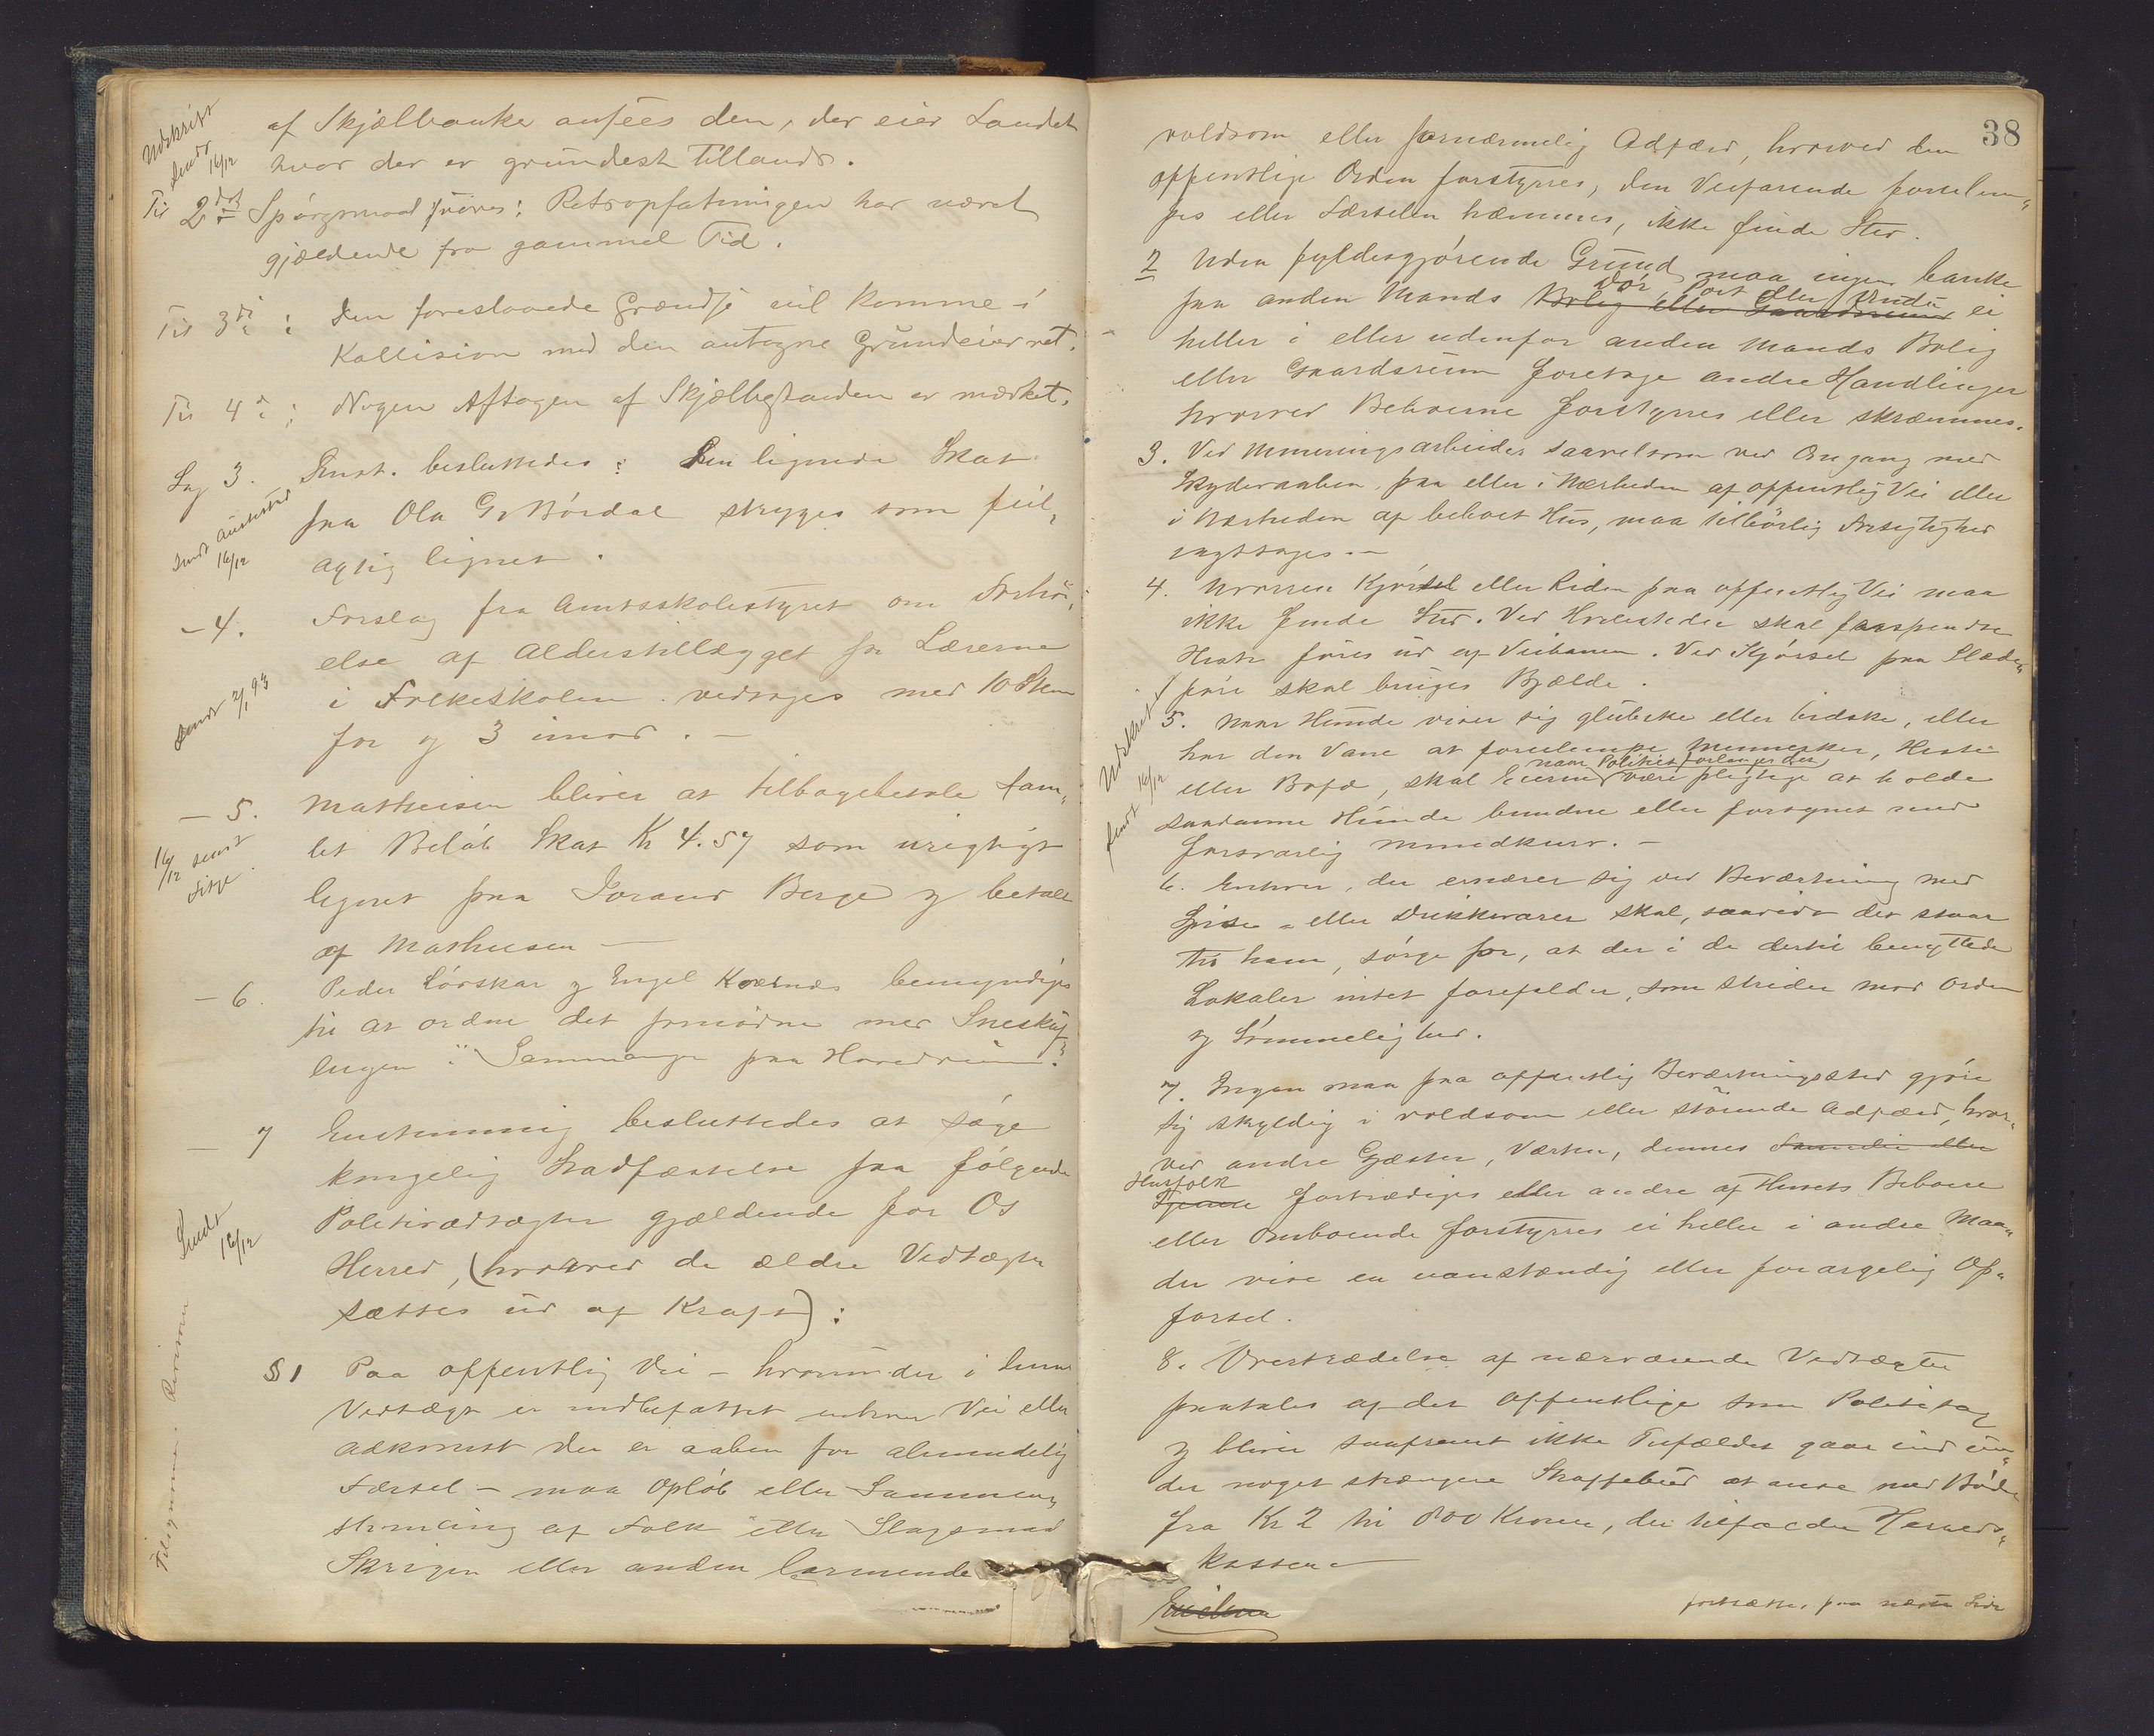 Udskrift
sendt
16/12
af Skjælbanke ansées den, der eier Landet
hvor der er grundest Tillands.
Til 2det Spörgsmaal svares: Retsopfatningen har været
gjældende fra gammel Tid.
Til 3die : Den foreslaaede Grændse vil komme i
Kollision med den antagne Grundeierret.
Til 4de : Nogen Aftagen af Skjælbestanden er mærket.
Sag 3. Enst. besluttedes: Den lignede Skat
paa Ola G. Mórdal stryges som feil-
agtig lignet.
Sendt
16/12
- 4. Forslag fra Amtsskolestyret om Forhöi-
else af Alderstillægget for Lærerne
i Folkeskolen vedtoges med 10 Stem
for og 3 imod. -
Sendt 2/1 93
- 5. Mathisen bliver at tilbagebetale sam-
let Belöb Skat Kr 4.57 som urigtigt
lignet paa Berge og betalt
af Mathisen -
16/12 sendt
- 6. Peder Lörskar og Engel Kværnæs bemyndiges
til at ordne det fornödne med Sneskuf-
lingen i Sammange paa Hovedveien.
- 7 Enstemmig besluttedes at söge
kongelig Stadfæstelse paa fölgende
Politivedtægter gjældende for Os
Herred, (hvorved de ældre Vedtægter
sættes ud af Kraft):
Sendt
16/12
§ 1 Paa offentlig Vei - hvorunder i denne
Vedtægt er indbefattet enhver Vei eller
Adkomst der er aaben for almindelig
Færsel - maa Oplöb eller Sammen-
stimling af Folk eller Slagsmaal
Skrigen eller anden larmende
38
voldsom eller fornærmelig Adfærd, hvorved den
offentlige Orden forstyrres, den Veifarende forulem-
pes eller Færselen hæmmes, ikke finde Sted.
2 Uden fyldesgjörende Grund maa ingen banke
Dör, Port eller Vindu
paa anden Mands Bolig eller Gaardsrum ei
heller i eller udenfor anden Mands Bolig
eller Gaardsrum foretage andre Handlinger
hvorved Beboerne forstyrres eller skræmmes.
3. Ved Mineringsarbeider saavelsom ved Omgang med
Skydevaaben paa eller i Nærheden af offentlig Vei eller
i Nærheden af beboet Hus, maa tilbörlig Forsigtighed
iagttages. -
4. Uvorren Kjörsel eller Riden paa offentlig Vei maa
ikke finde Sted. Ved Hvilesteder skal forspændte
Heste föres ud af Veibanen. Ved Kjörsel paa Slæde-
före skal bruges Bjælde.
Udskrift
sendt 16/12
5. Naar Hunde viser sig glubske eller bidske, eller
har den Vane at forulempe Mennesker, Heste
naar Politiet forlanger det
eller Bufæ, skal Eieren være pligtig at holde
saadanne Hunde bundne eller forsynet med
forsvarlig Mundkurv. -
6. Enhver, der ernærer sig ved Beværtning med
Spise- eller Drikkevarer skal, saavidt det staar
til ham, sörge for, at der i de dertil benyttede
Lokaler intet forefalder, som strider mod Orden
og Sömmelighed.
7. Ingen maa paa offentlig Beværtningssted gjöre
sig skyldig i voldsom eller störende Adfærd, hvor-
ved andre Gjæster, Værten, dennes Familie eller
Husfolk
Tjenere fortrædiges eller andre af Husets Beboere
eller Omboende forstyrres ei heller i andre Maa-
der vise en uanstændig eller forargelig Op-
forsel.
8. Overtrædelse af nærværende Vedtægter
paatales af det Offentlige som Politisag
og bliver saafremt ikke Tilfældet gaar ind un-
der noget strængere Straffebud at anse med Böder
fra Kr 2 til 800 Kroner, der tilfalder Herreds-
kassen -
fortsættes paa næste Side